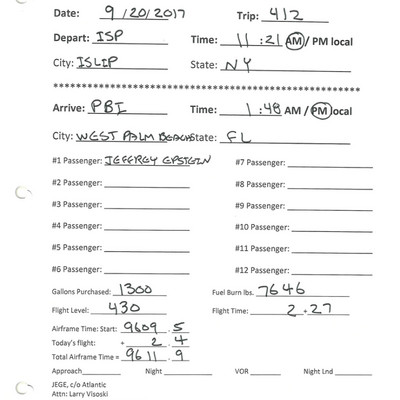 Date: 9/20/2017 Trip: 412
Depart: ISP Time: 11:21 AM / PM local
City: ISLIP State: NY
****************************************************
Arrive: PBI Time: 1:48 AM / PM local
City: WEST PALM BEACH State: FL
#1 Passenger: JEFFREY EPSTEIN #7 Passenger:
#2 Passenger: #8 Passenger:
#3 Passenger: #9 Passenger:
#4 Passenger: #10 Passenger:
#5 Passenger: #11 Passenger:
#6 Passenger: #12 Passenger:
Gallons Purchased: 1300 Fuel Burn lbs. 7646
Flight Level: 430 Flight Time: 2+27
Airframe Time: Start: 9609.5
Today's flight: + 2.4
Total Airframe Time = 9611.9
Approach Night VOR Night Lnd
JEGE, c/o Atlantic
Attn: Larry Visoski